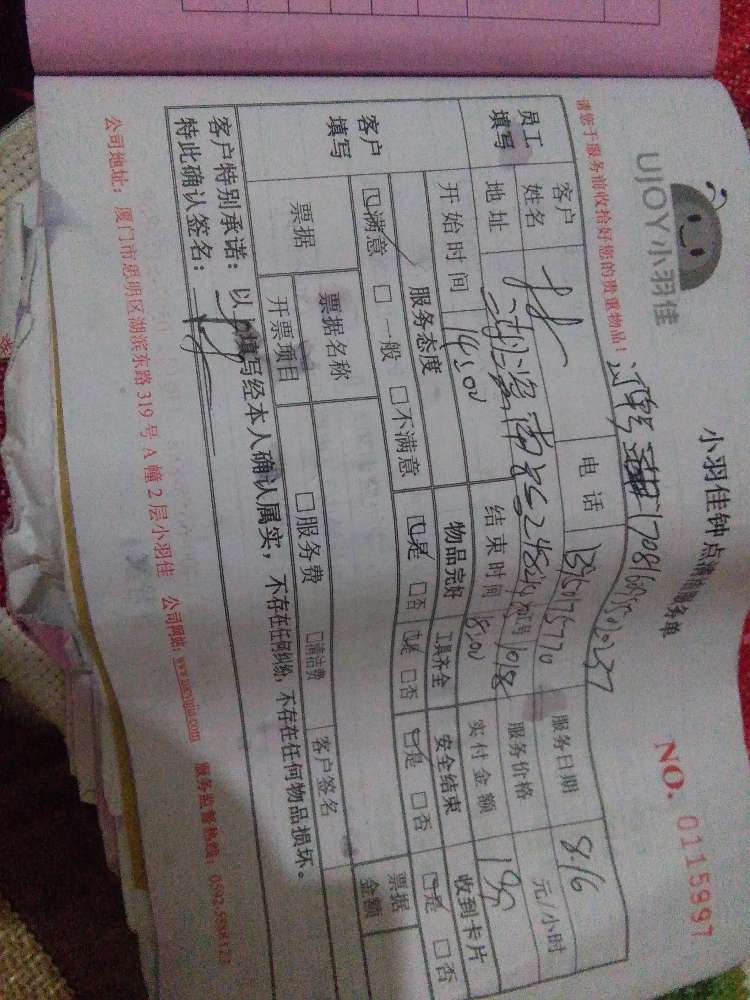 UJOY小羽佳
小羽佳钟点清洁服务单
NO. 0115997
请您于服务前收拾好您的贵重物品！
员工填写 客户姓名 电话 服务日期 8.16
地址 服务价格 元/小时
开始时间 14:00 结束时间 18:00 实付金额
客户填写 服务态度 物品完好 工具齐全 安全结束 收到卡片
☑满意 □一般 □不满意 ☑是 □否 ☑是 □否 ☑是 □否 ☑是 □否
票据 票据名称 票据金额
开票项目 □服务费 □清洁费 客户签名
客户特别承诺：以上填写经本人确认属实，不存在任何纠纷，不存在任何物品损坏。
特此确认签名：
公司地址：厦门市思明区湖滨东路319号A幢2层小羽佳 公司网站：www.xiaoyujia.com 服务监督热线：